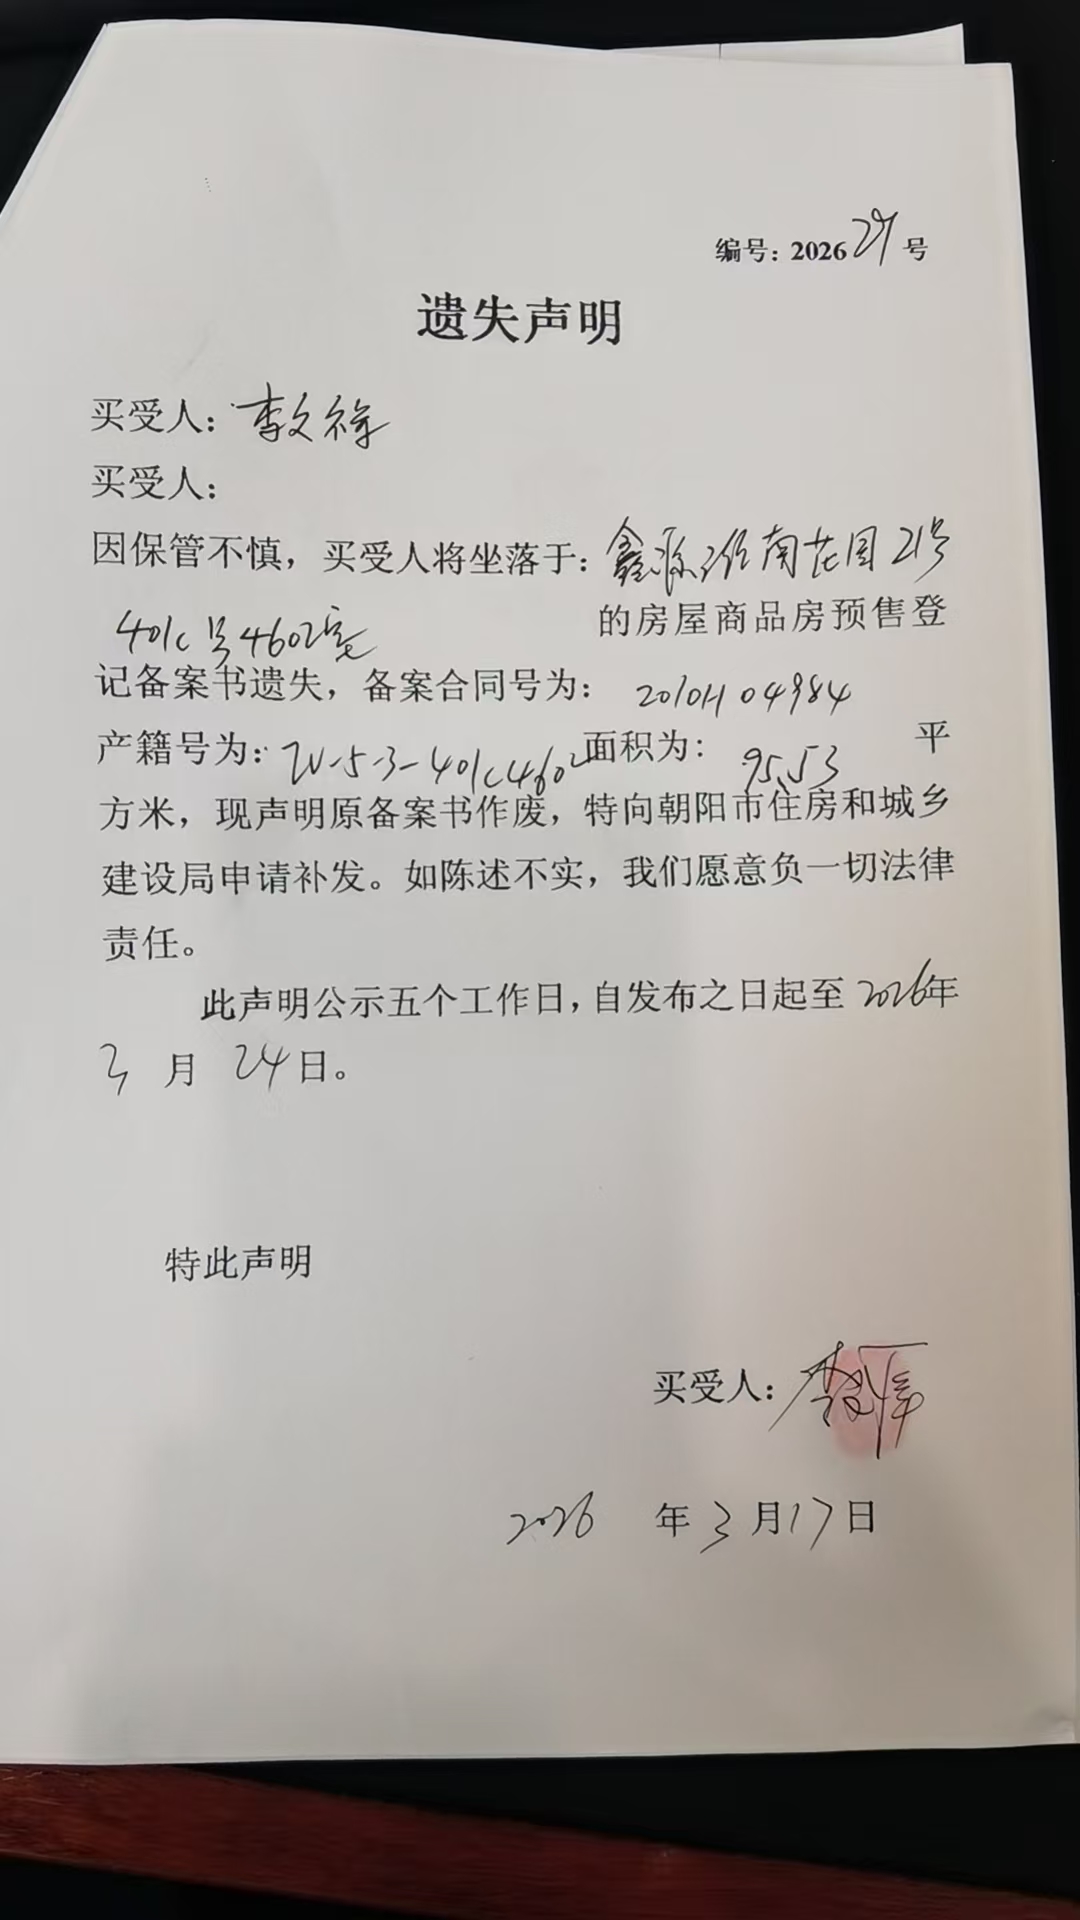 编号：2026 29 号
遗失声明
买受人：李文
买受人：
因保管不慎，买受人将坐落于：鑫源 南花园 21号
401c号4602室 的房屋商品房预售登
记备案书遗失，备案合同号为： 2010H04984
产籍号为： -5-3-401c4602 面积为： 95.53 平
方米，现声明原备案书作废，特向朝阳市住房和城乡
建设局申请补发。如陈述不实，我们愿意负一切法律
责任。
此声明公示五个工作日，自发布之日起至 2026年
3 月 24日。
特此声明
买受人：李文
2026 年 3 月 17 日